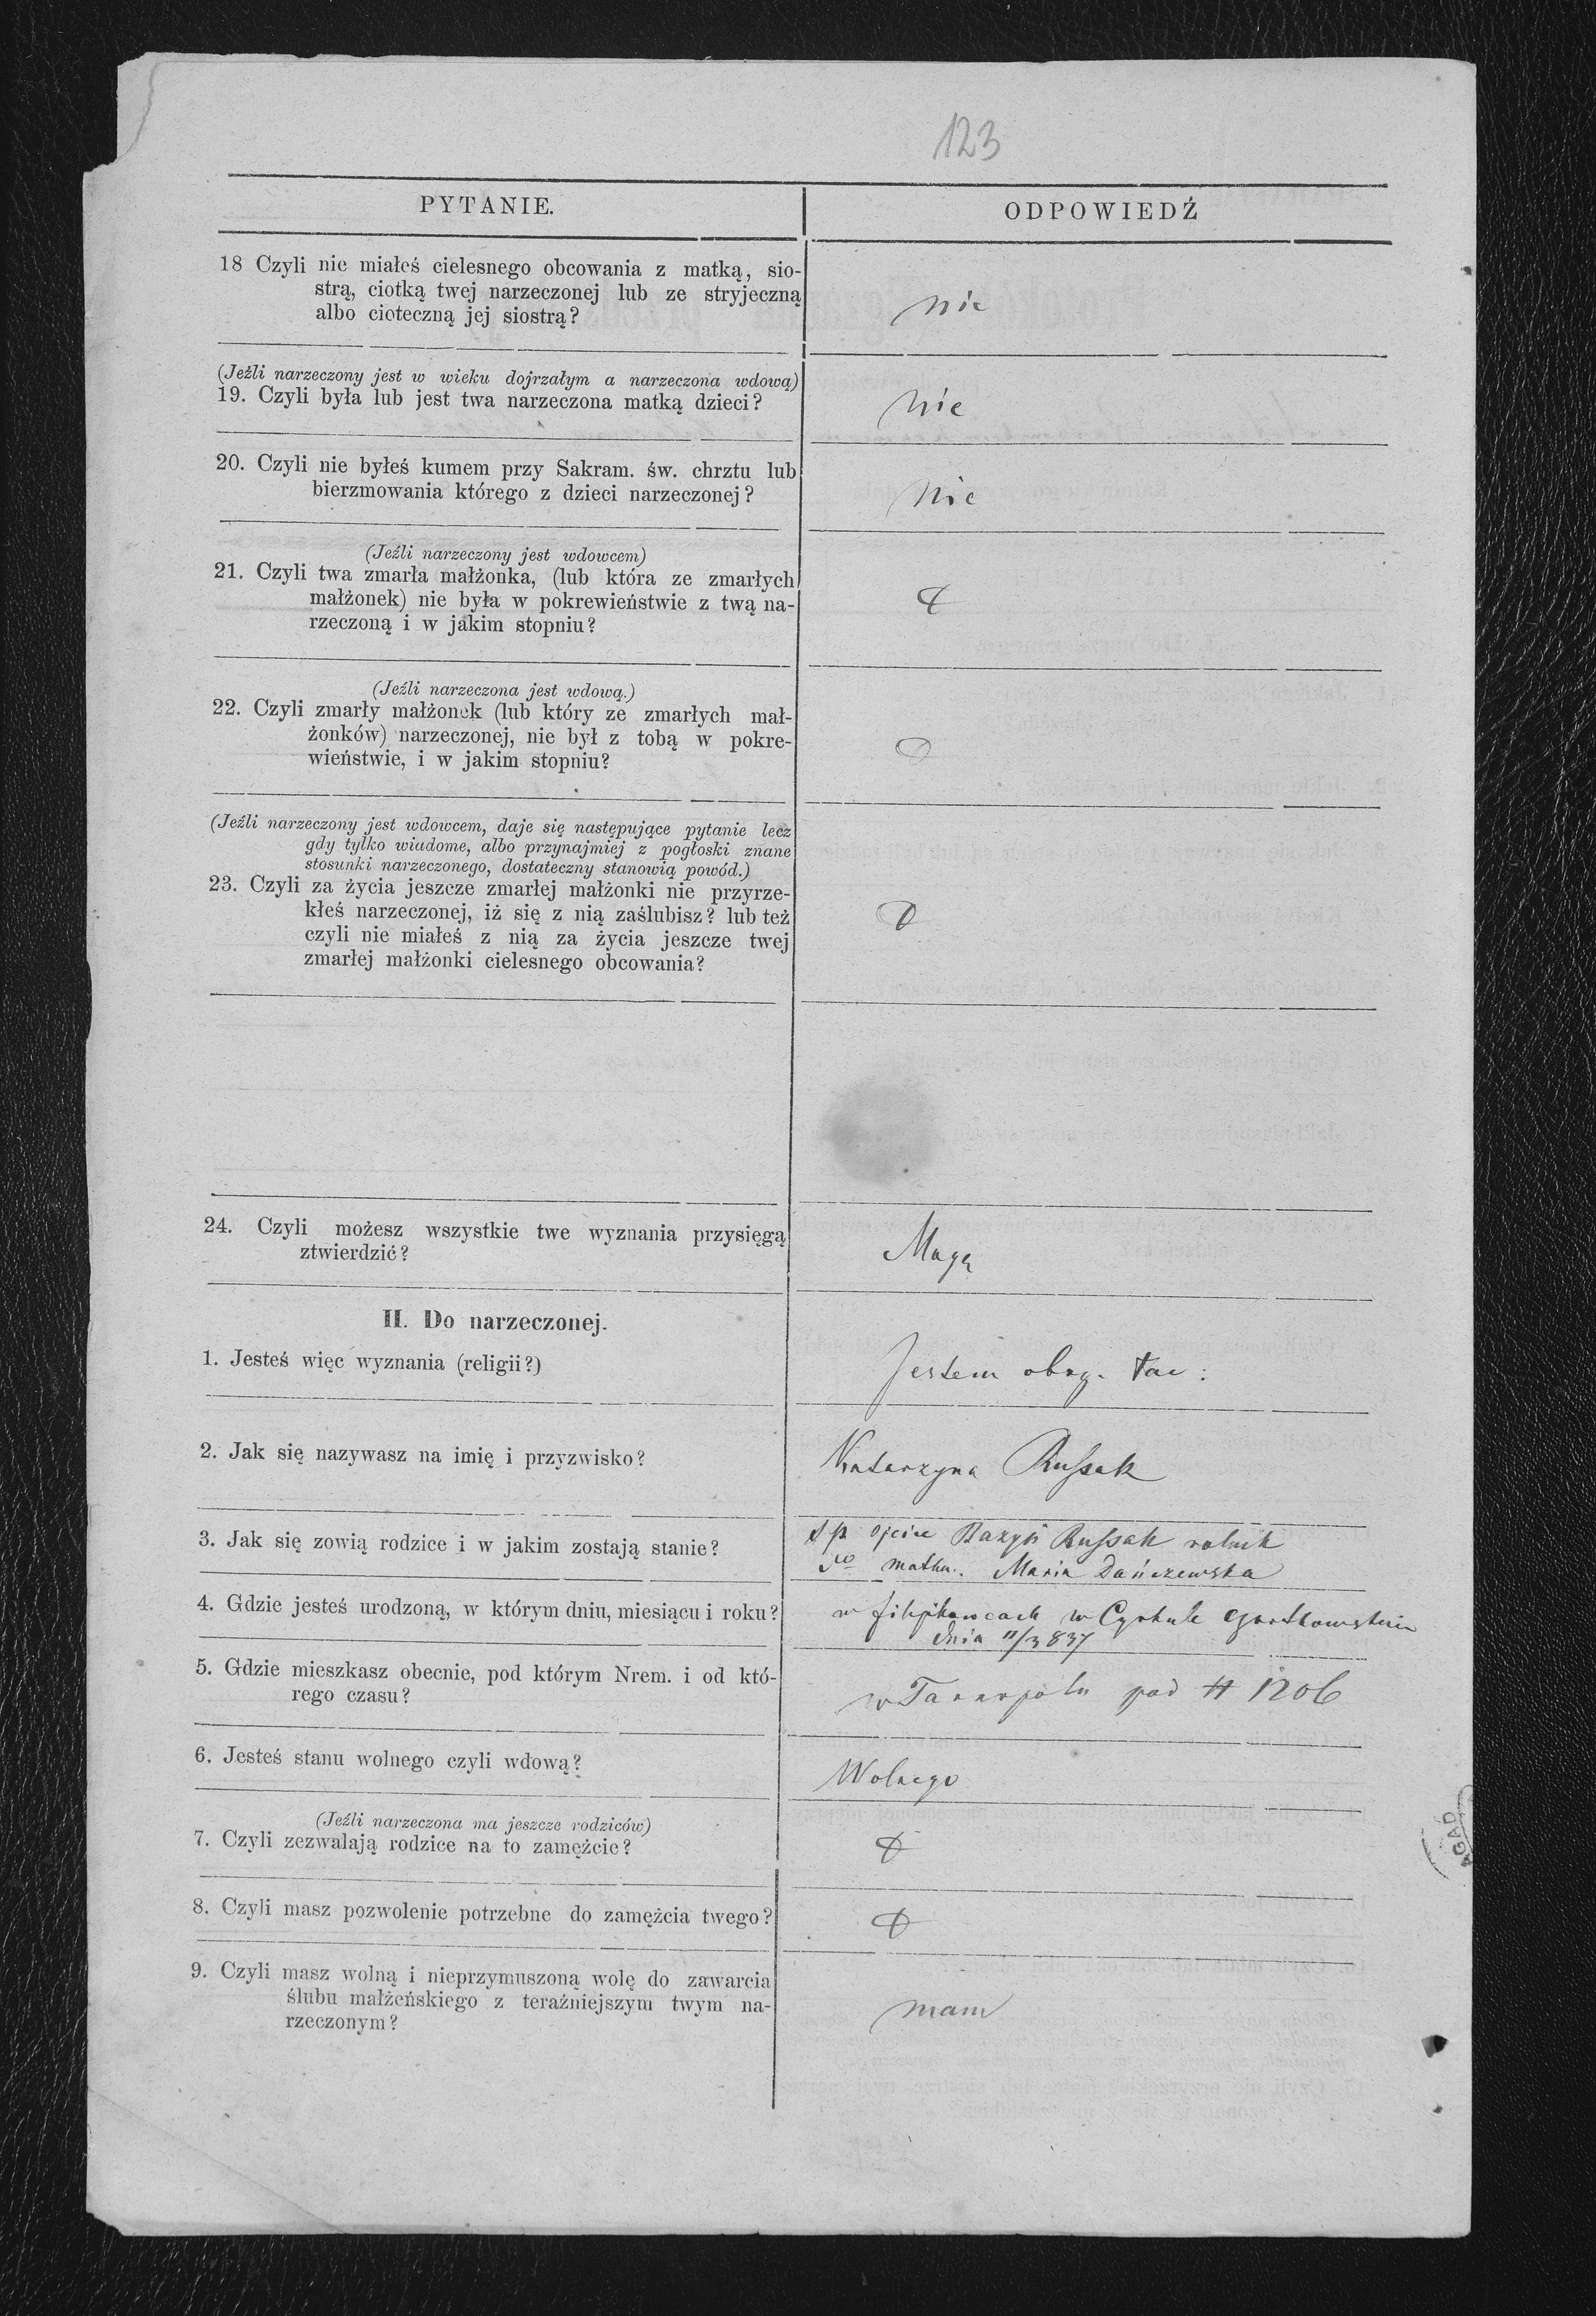 123
PYTANIE.
ODPOWIEDŹ
18 Czyli nie miałeś cielesnego obcowania z matką, sio-
strą, ciotką twej narzeczonej lub ze stryjeczną
albo cioteczną jej siostrą?
nie
(Jeźli narzeczony jest w wieku dojrzałym a narzeczona wdową)
19. Czyli była lub jest twa narzeczona matką dzieci?
nie
20. Czyli nie byłeś kumem przy Sakram. św. chrztu lub
bierzmowania którego z dzieci narzeczonej?
nie
(Jeźli narzeczony jest wdowcem)
21. Czyli twa zmarła małżonka, (lub która ze zmarłych
małżonek) nie była w pokrewieństwie z twą na-
rzeczoną i w jakim stopniu?
(Jeźli narzeczona jest wdową.)
22. Czyli zmarły małżonek (lub który ze zmarłych mał-
żonków) narzeczonej, nie był z tobą w pokre-
wieństwie, i w jakim stopniu?
(Jeźli narzeczony jest wdowcem, daje się następujące pytanie lecz
gdy tylko wiadome, albo przynajmiej z pogłoski znane
stosunki narzeczonego, dostateczny stanowią powód.)
23. Czyli za życia jeszcze zmarłej małżonki nie przyrze-
kłeś narzeczonej, iż się z nią zaślubisz? lub też
czyli nie miałeś z nią za życia jeszcze twej
zmarłej małżonki cielesnego obcowania?
24. Czyli możesz wszystkie twe wyznania przysięgą
ztwierdzić?
Mogę
II. Do narzeczonej.
1. Jesteś więc wyznania (religii?)
Jestem obrz. łac:
2. Jak się nazywasz na imię i przyzwisko?
Katarzyna Russak
3. Jak się zowią rodzice i w jakim zostają stanie?
śp ojciec Bazyli Russak rolnik
matka. Maria Dańczewska
4. Gdzie jesteś urodzoną, w którym dniu, miesiącu i roku?
w Filipkowcach w Cyrkule Czortkowskim
dnia 11/3 837
5. Gdzie mieszkasz obecnie, pod którym Nrem. i od któ-
rego czasu?
w Tarnopolu pod # 1206
6. Jesteś stanu wolnego czyli wdową?
Wolnego
(Jeźli narzeczona ma jeszcze rodziców)
7. Czyli zezwalają rodzice na to zamęźcie?
8. Czyli masz pozwolenie potrzebne do zamężcia twego?
9. Czyli masz wolną i nieprzymuszoną wolę do zawarcia
ślubu małżeńskiego z teraźniejszym twym na-
rzeczonym?
mam
AGAD